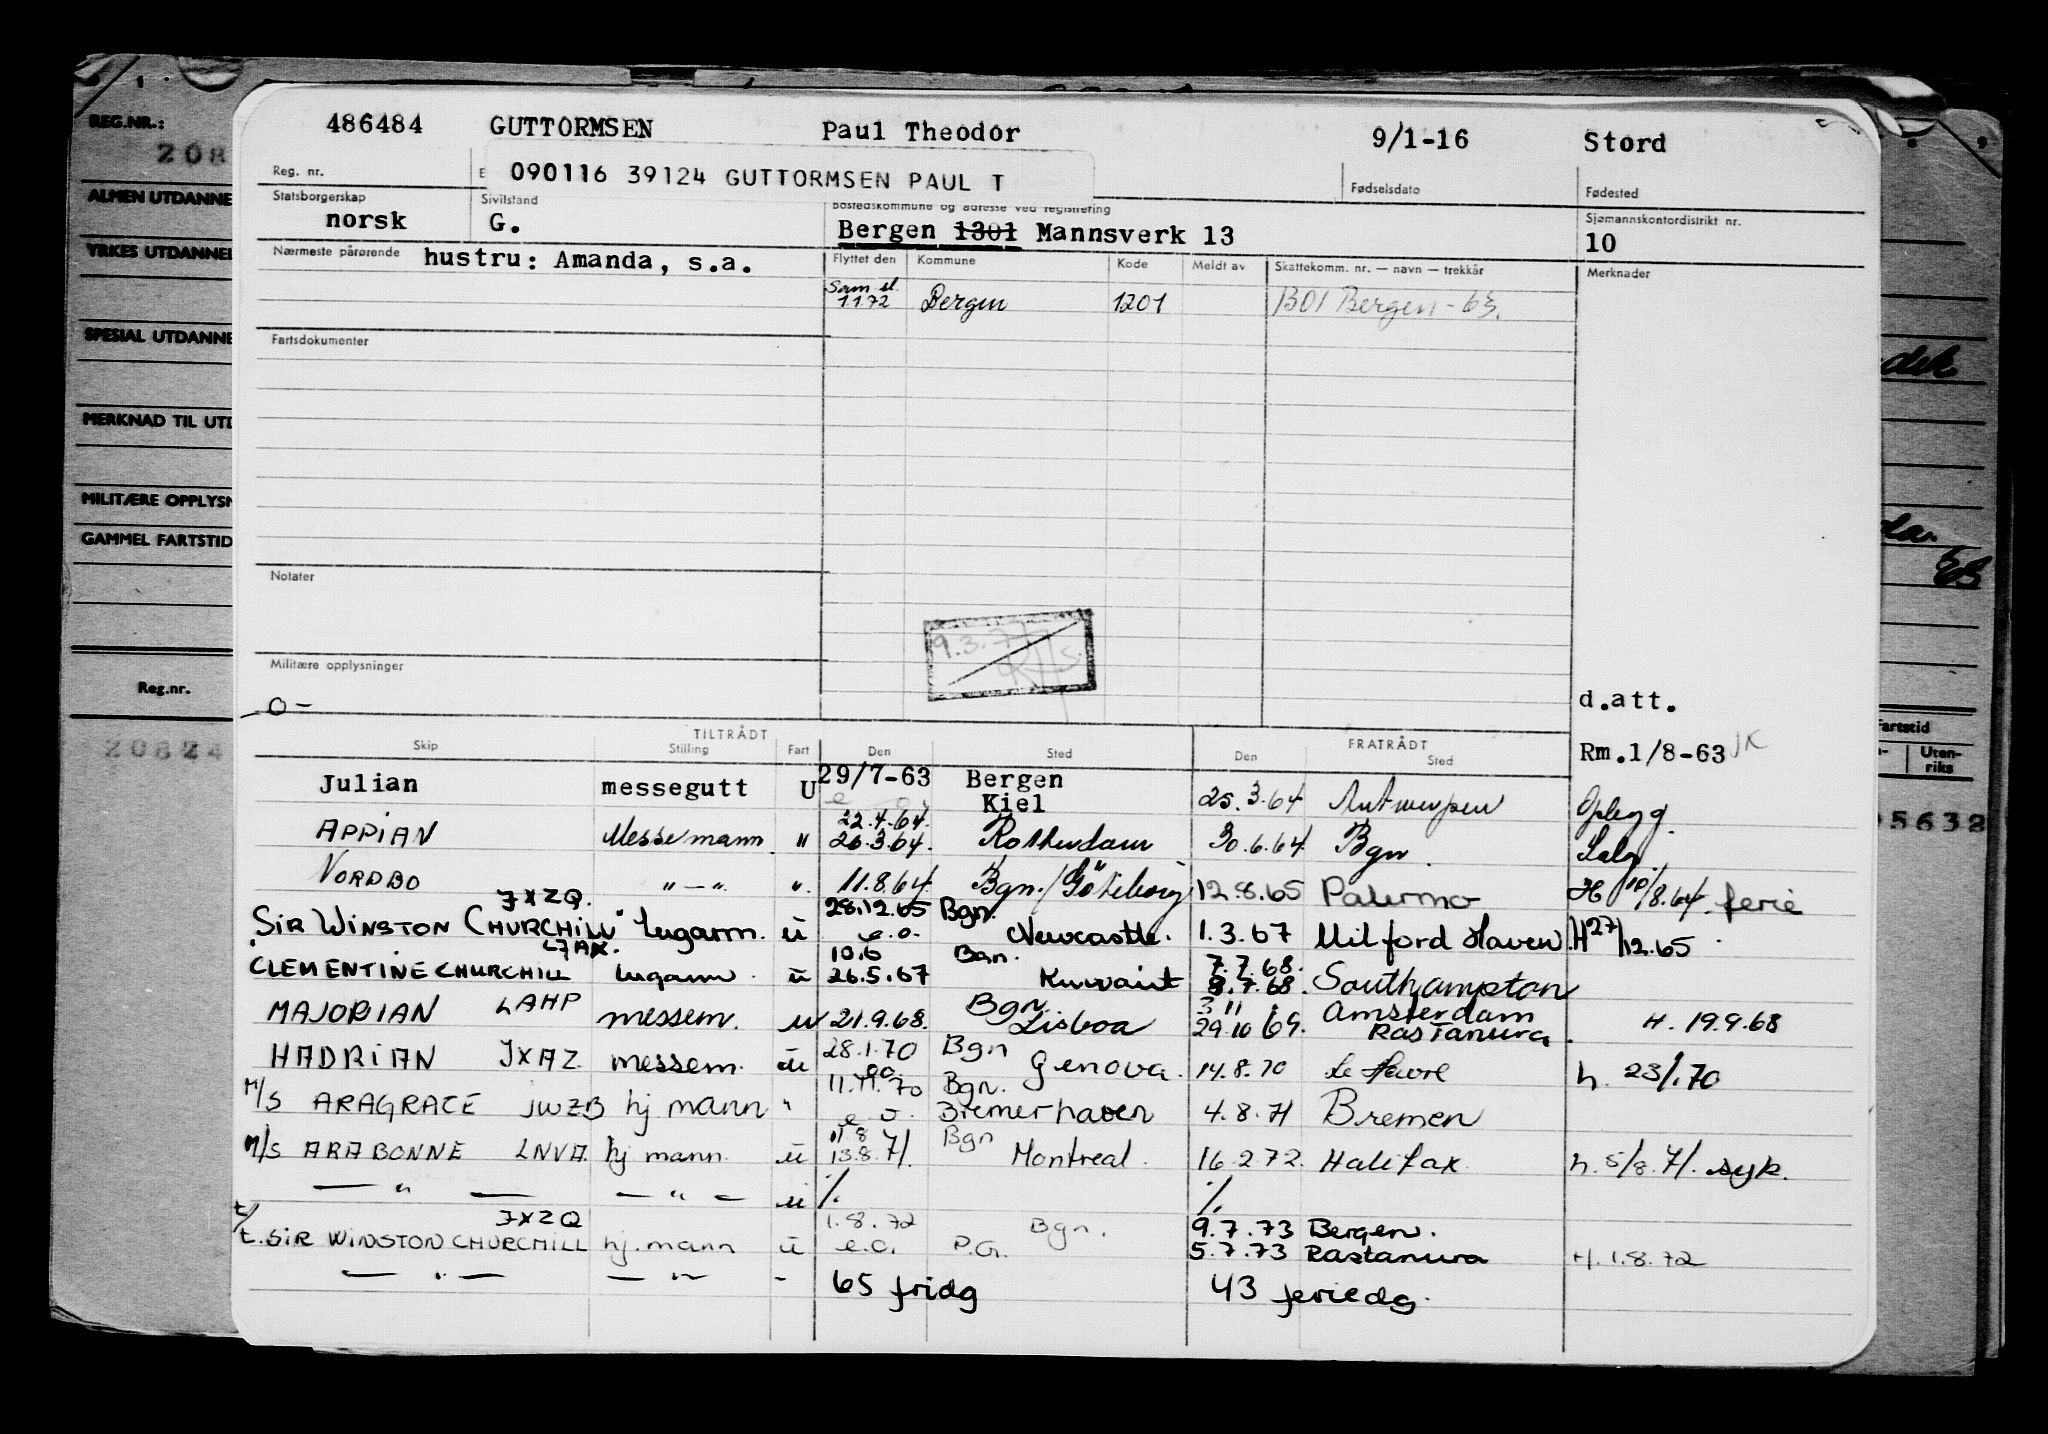 REG.NR.:
208
ALMEN UTDANNE
YRKES UTDANNEL
SPESIAL UTDANNE
MERKNAD TIL UTD
MILITÆRE OPPLYSN
GAMMEL FARTSTID
Reg.nr.
20824
486484 GUTTORMSEN Paul Theodor 9/1-16 Stord
090116 39124 GUTTORMSEN PAUL T
Reg. nr. E Fødselsdato Fødested
Statsborgerskap Sivilstand Bostedskommune og adresse ved registrering Sjømannskontordistrikt nr.
norsk G. Bergen 1301 Mannsverk 13 10
Nærmeste pårørende hustru: Amanda, s.a.
Flyttet den Kommune Kode Meldt av Skattekomm. nr. — navn — trekkår Merknader
Sam.sl. 1172 Bergen 1201 1301 Bergen - 63.
Fartsdokumenter
Notater
9.3.77
Militære opplysninger
-0-
d.att.
TILTRÅDT FRATRÅDT
Skip Stilling Fart Den Sted Den Sted
Rm.1/8-63 JK
Julian messegutt U 29/7-63 Bergen Kiel 25.3.64 Antwerpen Opplegg
APPIAN Messemann " 22.4.64. 26.3.64. Rotterdam 30.6.64 Bgn. Salg.
NORDBO "—" ". 11.8.64. Bgn./Göteborg 12.8.65 Palermo H 10/8.64. ferie
SIR WINSTON CHURCHILL JXZQ. lugarm. ü 28.12.65 e.o. Bgn. Newcastle. 1.3.67 Milford Haven H 27/12.65
CLEMENTINE CHURCHILL LJAK. lugarm. ü 10.6 26.5.67 Bgn. Kuwait 7.7.68. 8.7.68. Southampton
MAJORIAN LAHP messem. u 21.9.68. Bgn Lisboa 3 11 29.10 69. Amsterdam Rastanura. H. 19.9.68
HADRIAN JXAZ messem. ü 28.1.70 eo Bgn Genova. 14.8.70 Le Havre h. 23/1.70
M/S ARAGRACE JWZB hj mann " 11.11.70 e o. Bgn. Bremerhaven 4.8.71 Bremen
M/S ARABONNE LNVA. hj mann. ü 11 8 13.8.71. Bgn Montreal. 16.2.72. Halifax. h. 5/8.71. syk.
— " — — " — ü %. %.
t/t. SIR WINSTON CHURCHILL JXZQ hj. mann ü 1.8.72 e.o. Bgn. P.G. 9.7.73 Bergen. 5.7.73 Rastanura H. 1.8.72
— " — — " — - 65 fridg 43 feriedg.
63
Fartstid
Uten-
riks
05632